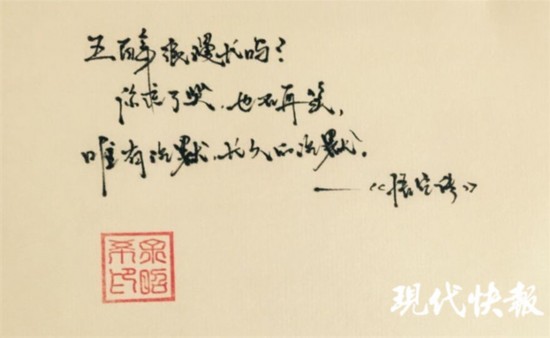 五百年很漫长吗?
你忘了哭,也不再笑,
唯有沉默,长久的沉默。
——《悟空传》
昭希印
现代快報